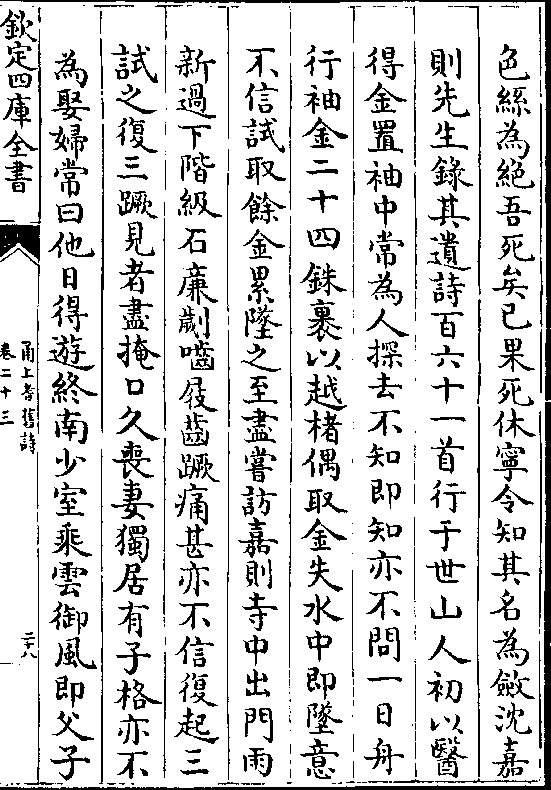 色絲為絕吾死矣已果死休寧令知其名為斂沈嘉
則先生錄其遺詩百六十一首行于世山人初以醫
得金置袖中常為人探去不知即知亦不問一日舟
行袖金二十四銖裹以越楮偶取金失水中即墜意
不信試取餘金累墜之至盡嘗訪嘉則寺中出門雨
新過下階級石廉劌嚙屐齒蹶痛甚亦不信復起三
試之復三蹶見者盡掩口久喪妻獨居有子格亦不
為娶婦常曰他日得遊終南少室乘雲御風即父子
欽定四庫全書
甬上耆舊詩
卷二十三
二十八